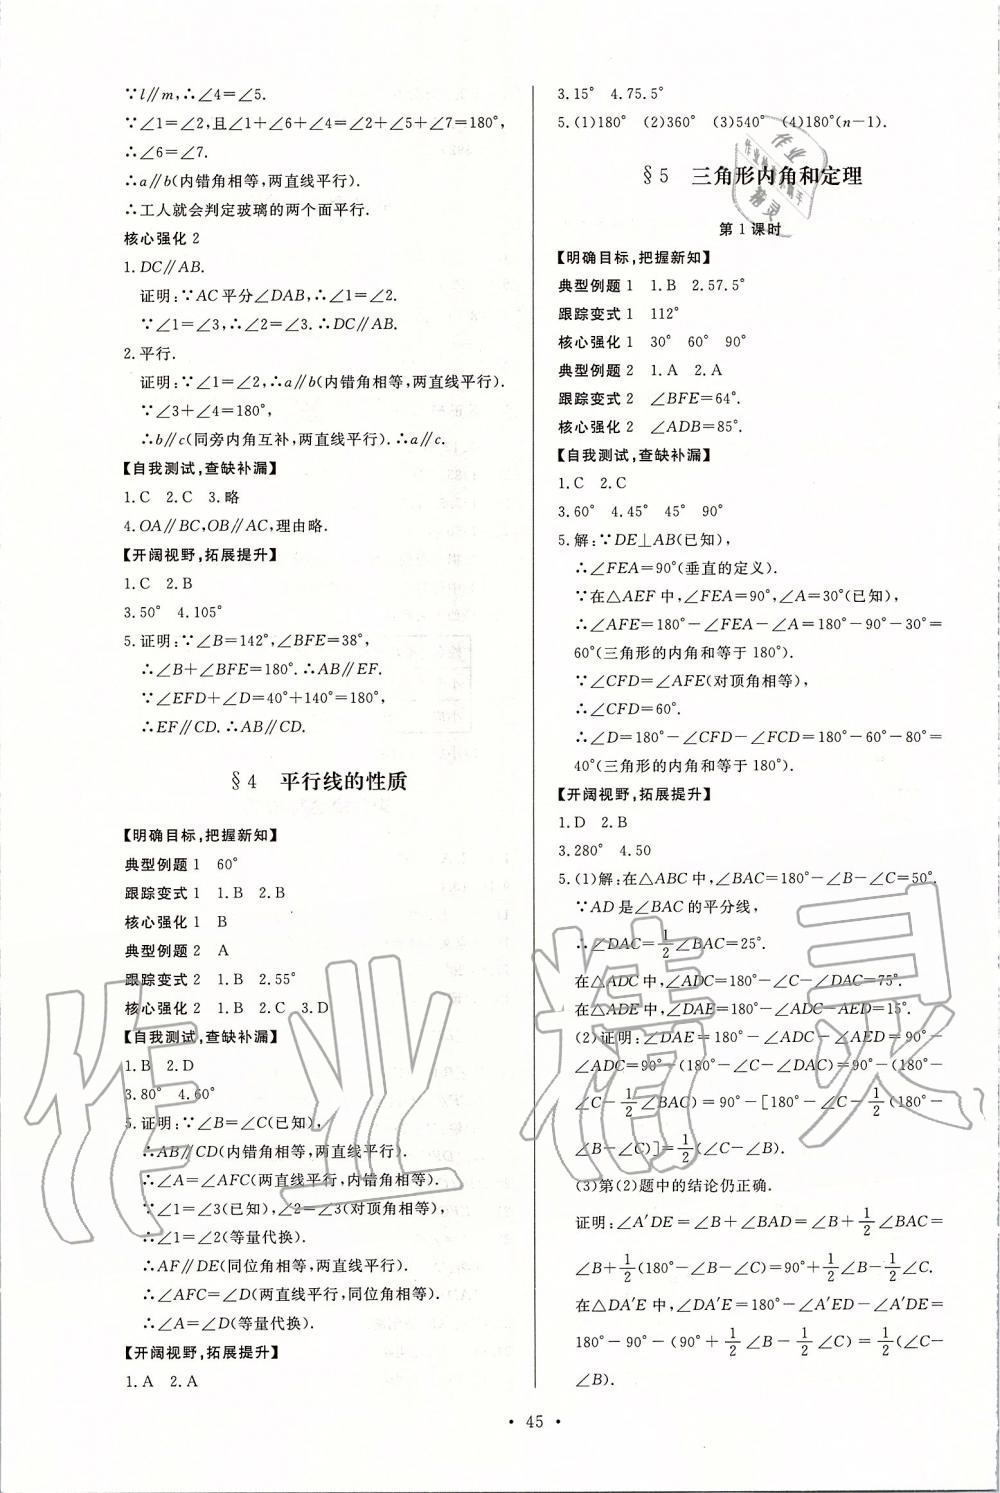 ∵l∥m,∴∠4=∠5.
∵∠1=∠2,且∠1+∠6+∠4=∠2+∠5+∠7=180°,
∴∠6=∠7.
∴a∥b(内错角相等,两直线平行).
∴工人就会判定玻璃的两个面平行.
核心强化 2
1. DC∥AB.
证明:∵AC平分∠DAB,∴∠1=∠2.
∵∠1=∠3,∴∠2=∠3.∴DC∥AB.
2. 平行.
证明:∵∠1=∠2,∴a∥b(内错角相等,两直线平行).
∵∠3+∠4=180°,
∴b∥c(同旁内角互补,两直线平行).∴a∥c.
【自我测试,查缺补漏】
1. C 2. C 3. 略
4. OA∥BC,OB∥AC,理由略.
【开阔视野,拓展提升】
1. C 2. B
3. 50° 4. 105°
5. 证明:∵∠B=142°,∠BFE=38°,
∴∠B+∠BFE=180°.∴AB∥EF.
∵∠EFD+∠D=40°+140°=180°,
∴EF∥CD.∴AB∥CD.
§4 平行线的性质
【明确目标,把握新知】
典型例题 1 60°
跟踪变式 1 1. B 2. B
核心强化 1 B
典型例题 2 A
跟踪变式 2 1. B 2. 55°
核心强化 2 1. B 2. C 3. D
【自我测试,查缺补漏】
1. B 2. D
3. 80° 4. 60°
5. 证明:∵∠B=∠C(已知),
∴AB∥CD(内错角相等,两直线平行).
∴∠A=∠AFC(两直线平行,内错角相等).
∵∠1=∠3(已知),∠2=∠3(对顶角相等),
∴∠1=∠2(等量代换).
∴AF∥DE(同位角相等,两直线平行).
∴∠AFC=∠D(两直线平行,同位角相等).
∴∠A=∠D(等量代换).
【开阔视野,拓展提升】
1. A 2. A
3. 15° 4. 75.5°
5. (1)180° (2)360° (3)540° (4)180°(n−1).
§5 三角形内角和定理
第 1 课时
【明确目标,把握新知】
典型例题 1 1. B 2. 57.5°
跟踪变式 1 112°
核心强化 1 30° 60° 90°
典型例题 2 1. A 2. A
跟踪变式 2 ∠BFE=64°.
核心强化 2 ∠ADB=85°.
【自我测试,查缺补漏】
1. C 2. C
3. 60° 4. 45° 45° 90°
5. 解:∵DE⊥AB(已知),
∴∠FEA=90°(垂直的定义).
∵在△AEF中,∠FEA=90°,∠A=30°(已知),
∴∠AFE=180°−∠FEA−∠A=180°−90°−30°=
60°(三角形的内角和等于180°).
∵∠CFD=∠AFE(对顶角相等),
∴∠CFD=60°.
∴∠D=180°−∠CFD−∠FCD=180°−60°−80°=
40°(三角形的内角和等于180°).
【开阔视野,拓展提升】
1. D 2. B
3. 280° 4. 50
5. (1)解:在△ABC中,∠BAC=180°−∠B−∠C=50°.
∵AD是∠BAC的平分线,
∴∠DAC=1/2∠BAC=25°.
在△ADC中,∠ADC=180°−∠C−∠DAC=75°.
在△ADE中,∠DAE=180°−∠ADC−AED=15°.
(2)证明:∠DAE=180°−∠ADC−∠AED=90°−
∠ADC=90°−(180°−∠C−∠DAC)=90°−(180°−
∠C−1/2∠BAC)=90°−[180°−∠C−1/2(180°−
∠B−∠C)]=1/2(∠C−∠B).
(3)第(2)题中的结论仍正确.
证明:∠A′DE=∠B+∠BAD=∠B+1/2∠BAC=
∠B+1/2(180°−∠B−∠C)=90°+1/2∠B−1/2∠C.
在△DA′E中,∠DA′E=180°−∠A′ED−∠A′DE=
180°−90°−(90°+1/2∠B−1/2∠C)=1/2(∠C−
∠B).
• 45 •
作业精灵